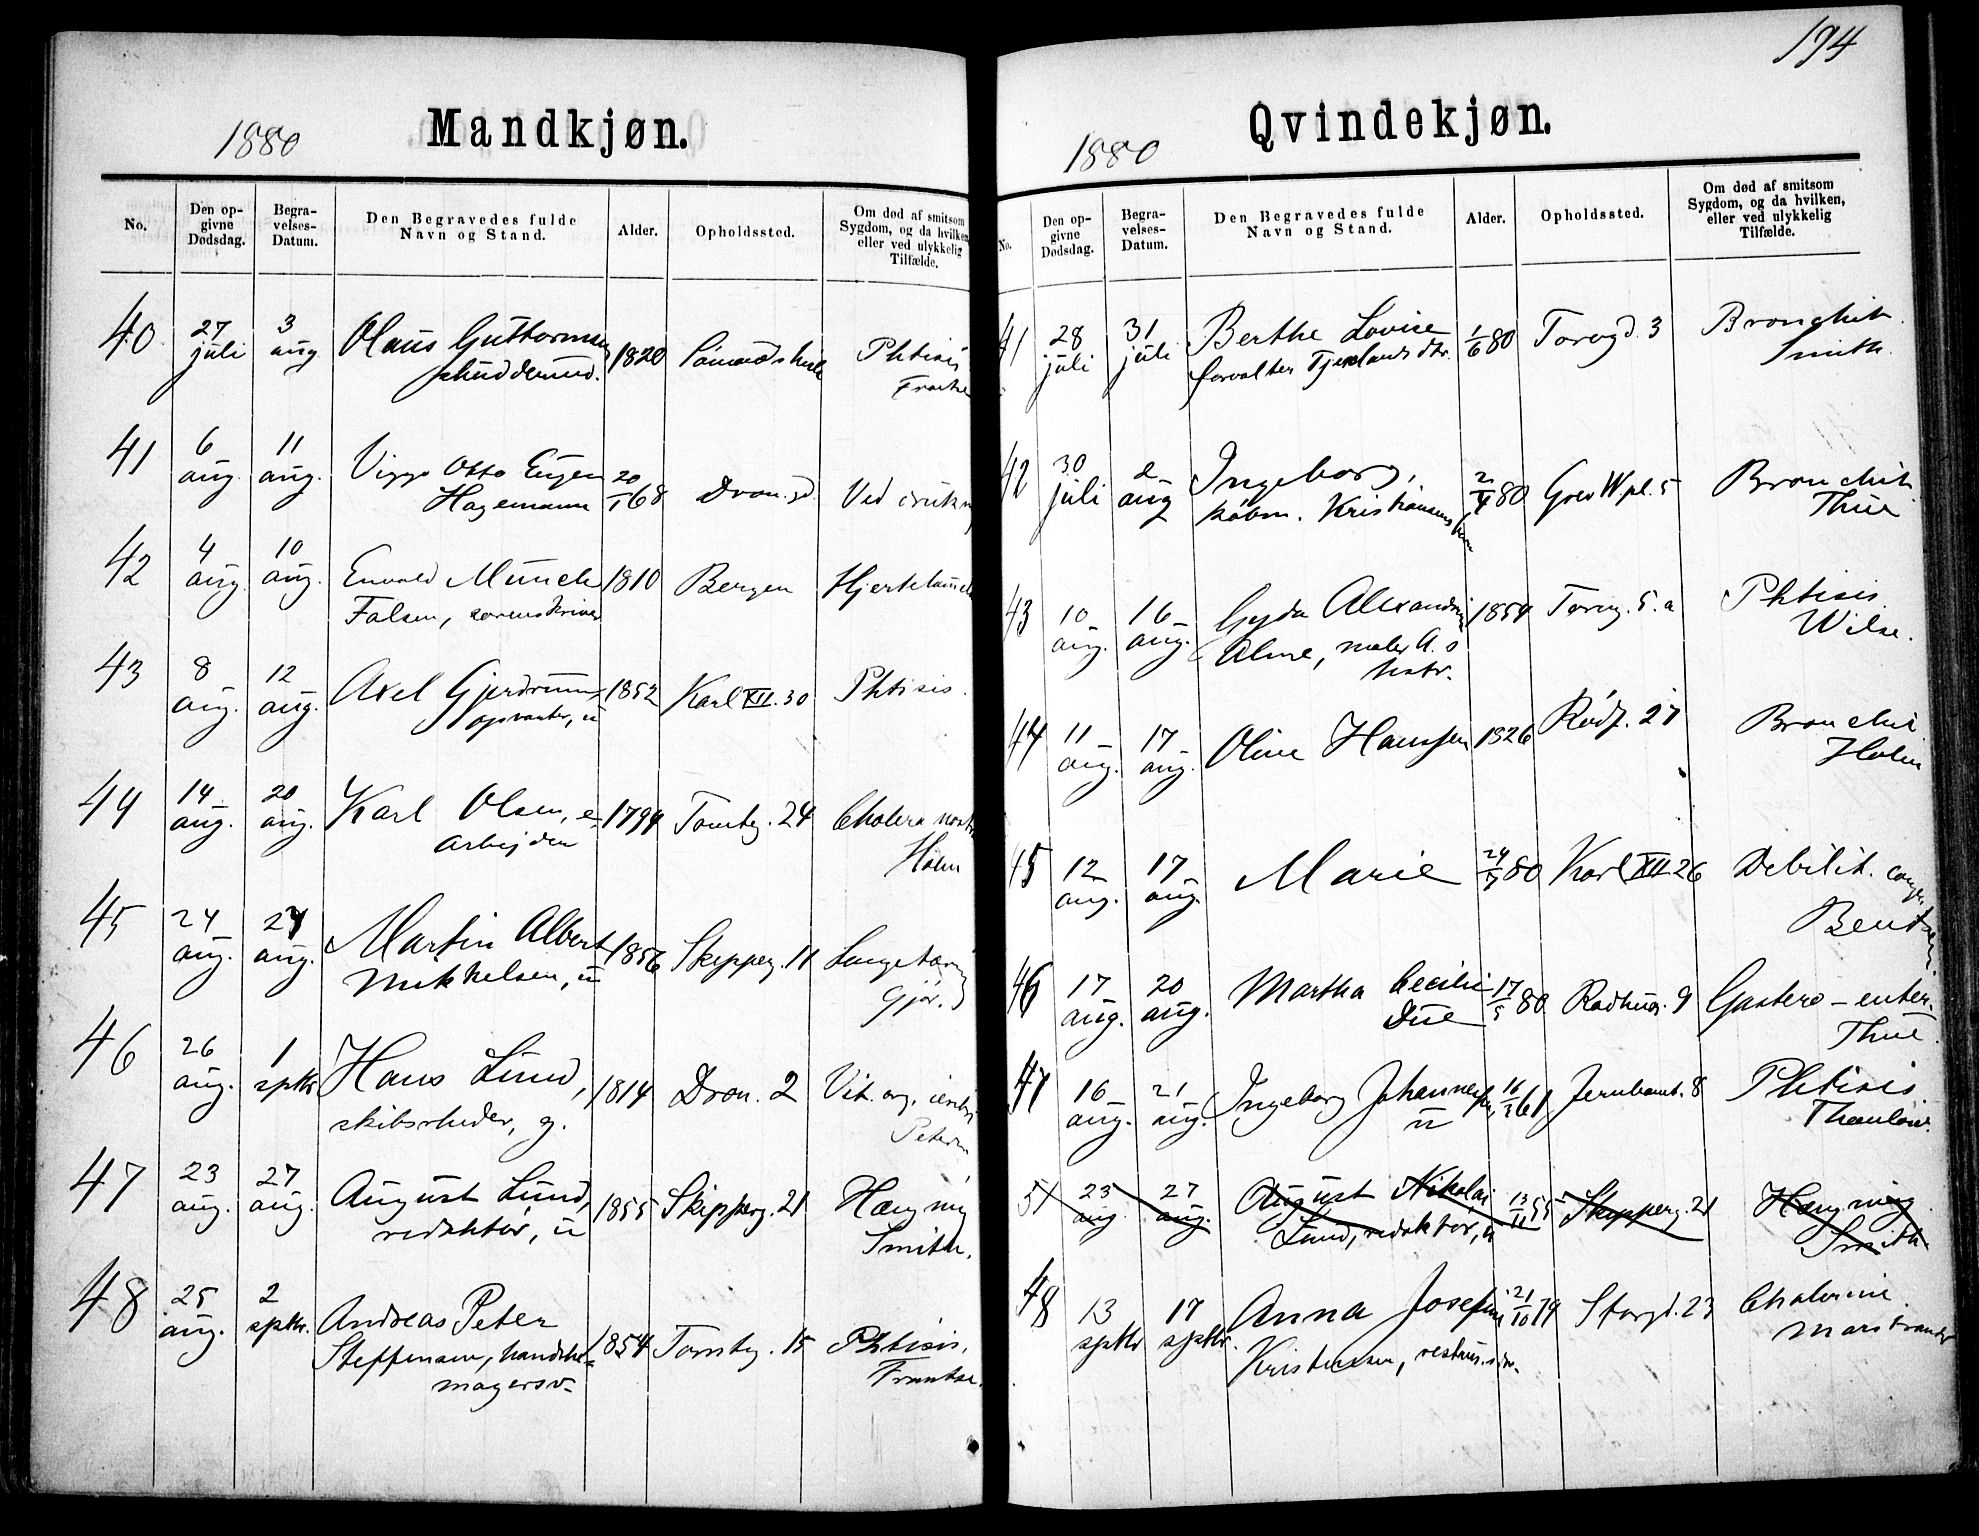 194
1880 Mandkjøn.
No.
Den op-
givne
Dødsdag.
Begra-
velses-
Datum.
Den Begravedes fulde
Navn og Stand.
Alder.
Opholdssted.
Om død af smitsom
Sygdom, og da hvilken
eller ved ulykkelig
Tilfælde.
40 27 juli 3 aug Olaus Guttormsen 1820 Phtisis
41 6 aug. 11 aug. Viggo Otto Eugen
Hagemann 20/1 68 Dron. gd. Ved drukn
42 4 aug 10 aug. Envold Munch 1810 Bergen Hjertelam
Falsen, sorenskriver
43 8 aug. 12 aug. Axel Gjerdrum 1852 Karl XII. 30 Phtisis.
opvarter, u
44 14 aug. 20 aug. Karl Olsen, e. 1794 Tomteg. 24 Cholera nost
arbejder Holm
45 24 aug. 27 aug. Martin Albert 1856 Skipperg. 11 Lungetæring
Mikkelsen, u Gjør.
46 26 aug. 1 sptbr Hans Lund, 1814 Dron. 2 Vit. org.
skibsrheder, g.
47 23 aug. 27 aug. August Lund, 1855 Skipperg. 21 Hængning
redaktør, u Smith.
48 25 aug. 2 sptbr. Andreas Peter
Steffensen, handske- 1854 Tomteg. 15 Phtisis.
magersv. Frantze.
1880 Qvindekjøn.
No.
Den op-
givne
Dødsdag.
Begra-
velses-
Datum.
Den Begravedes fulde
Navn og Stand.
Alder.
Opholdssted.
Om død af smitsom
Sygdom, og da hvilken,
eller ved ulykkelig
Tilfælde.
41 28 juli 31 juli Berthe Lovise 1/6 80 Torvgd. 3 Bronchit.
forvalter dtr. Smith.
42 30 juli 2 aug Ingeborg, 2/4 80 Grev W.pl. 5 Bronchit.
købm. Kristiansens Thue
43 10 aug. 16 aug. Gyda Alexandrine 1854 Torvg. 5.a Phtisis.
Alme, maler A.s Wilse.
hstr.
44 11 aug. 17 aug. Oline Hanssen 1826 Rødf. 27 Bronchit
Holm
45 12 aug. 17 aug. Marie 24/7 80 Karl XII 26 Debilit. cong.
Bentzen.
46 17 aug. 20 aug. Martha Cecilie 17/5 80 Raadhusg. 9 Gastero-enter.
Due Thue.
47 16 aug. 21 aug. Ingeborg Johannesen 61 Jernbanet. 8 Phtisis
u Thaulow.
51 23 aug. 27 aug. August Nikolai 13/11 55 Skipperg. 21 Hængning
Lund, redaktør, u Smith.
48 13 sptbr 17 sptbr. Anna Josefine 21/10 79 Storgd. 23 Cholerine.
Kristensen, Marstrander